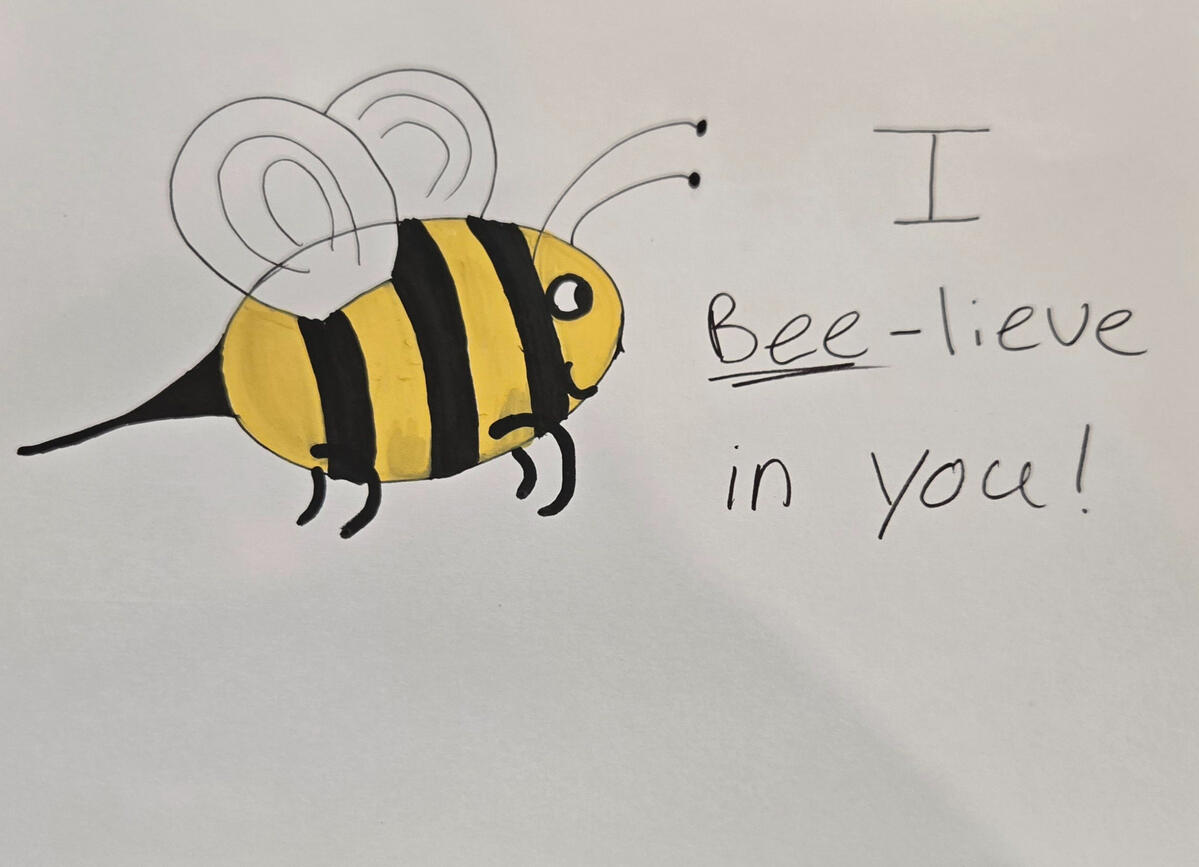 I
Bee-lieve
in you!